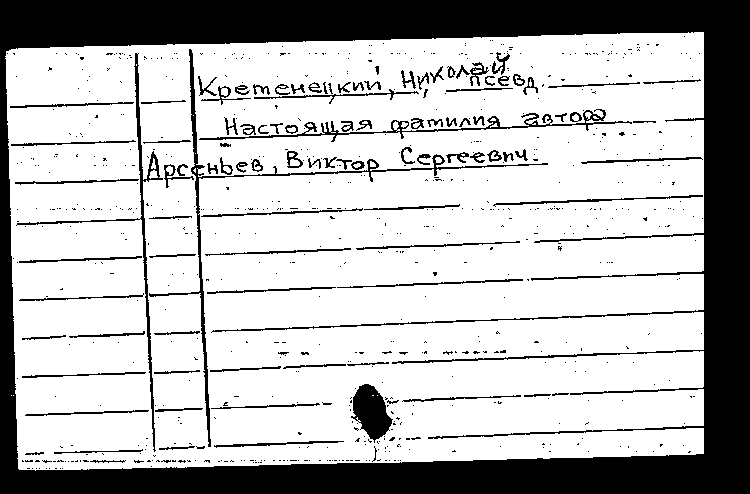 Кретенецкий, Николай псевд.
Настоящая фамилия автора
Арсеньев, Виктор Сергеевич.